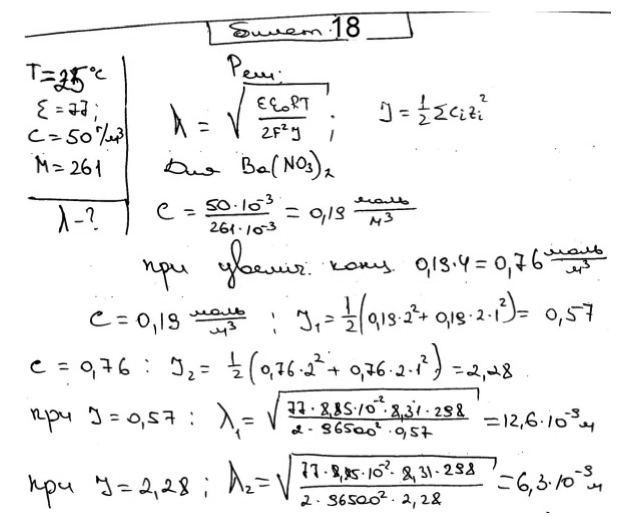 Билет 18
T=25°C
ε=77;
C=50 г/м³
M=261
λ-?
Реш:
λ = √(εε₀RT / 2F²J) ; J = 1/2 Σcᵢzᵢ²
Для Ba(NO₃)₂
C = 50·10⁻³ / 261·10⁻³ = 0,19 моль/м³
при увелич. конц 0,19·4=0,76 моль/м³
C=0,19 моль/м³ ; J₁=1/2(0,19·2²+0,19·2·1²)= 0,57
c = 0,76 : J₂= 1/2 (0,76·2²+ 0,76·2·1²) =2,28
при J=0,57 : λ₁= √(77·8,85·10⁻²·8,31·298 / 2·96500²·0,57) =12,6·10⁻⁹м
при J=2,28 ; λ₂=√(77·8,85·10⁻²·8,31·298 / 2·96500²·2,28) =6,3·10⁻⁹ м